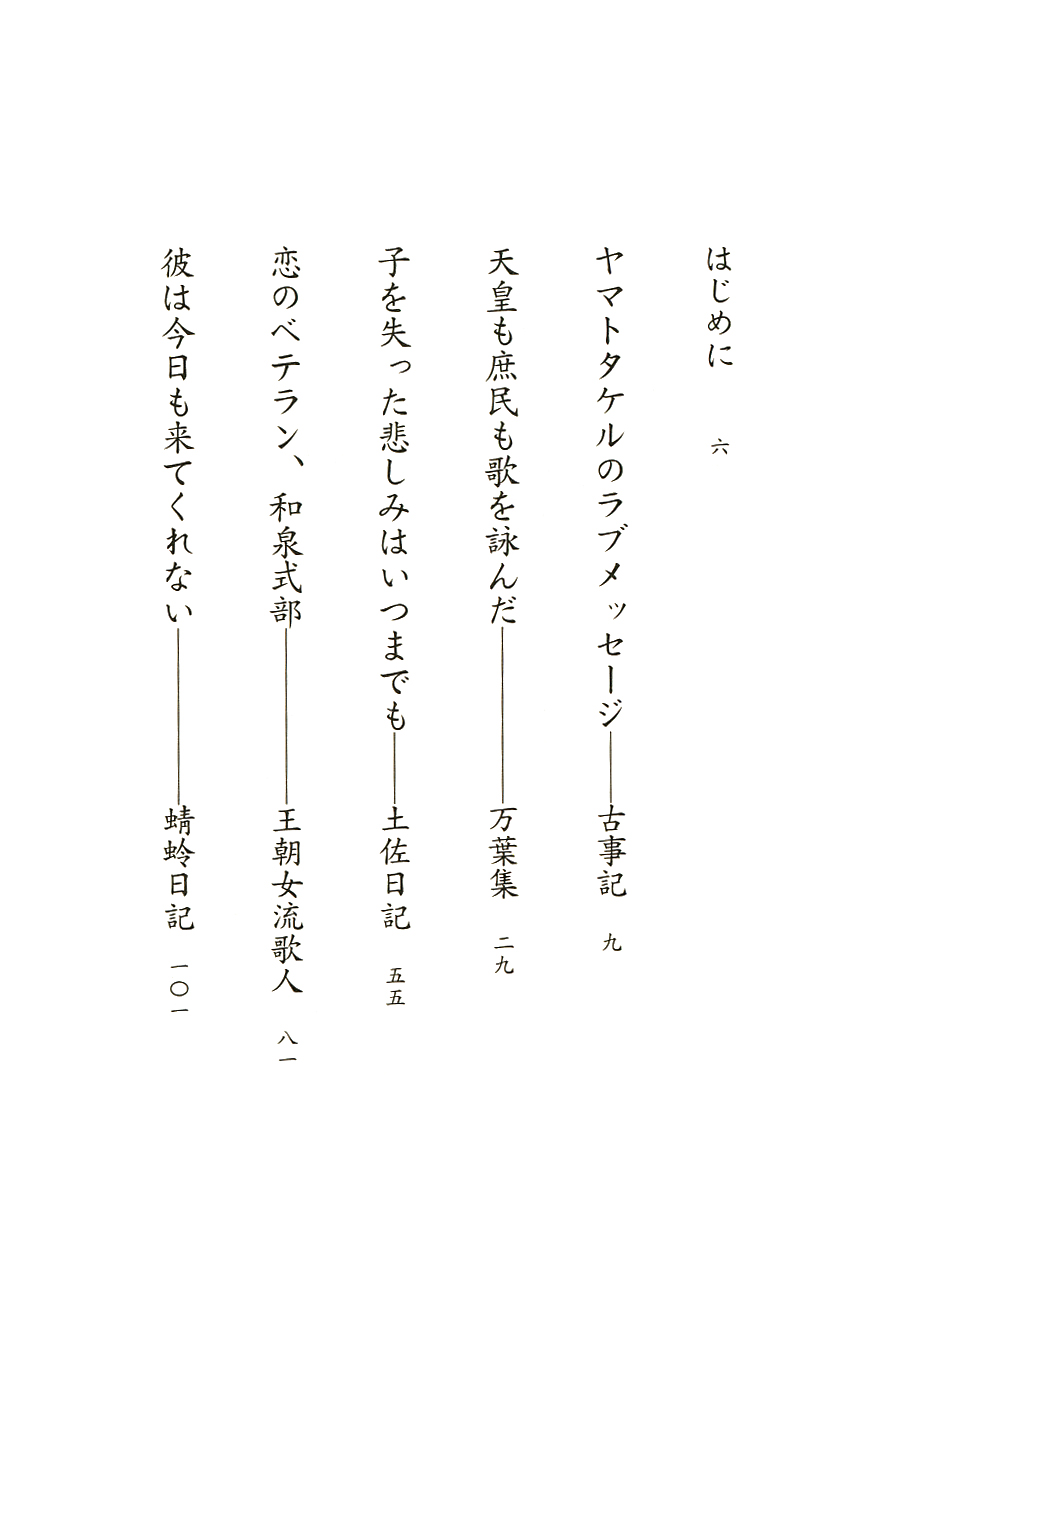 はじめに 六
ヤマトタケルのラブメッセージ――古事記 九
天皇も庶民も歌を詠んだ――万葉集 二九
子を失った悲しみはいつまでも――土佐日記 五五
恋のベテラン、和泉式部――王朝女流歌人 八一
彼は今日も来てくれない――蜻蛉日記 一〇一